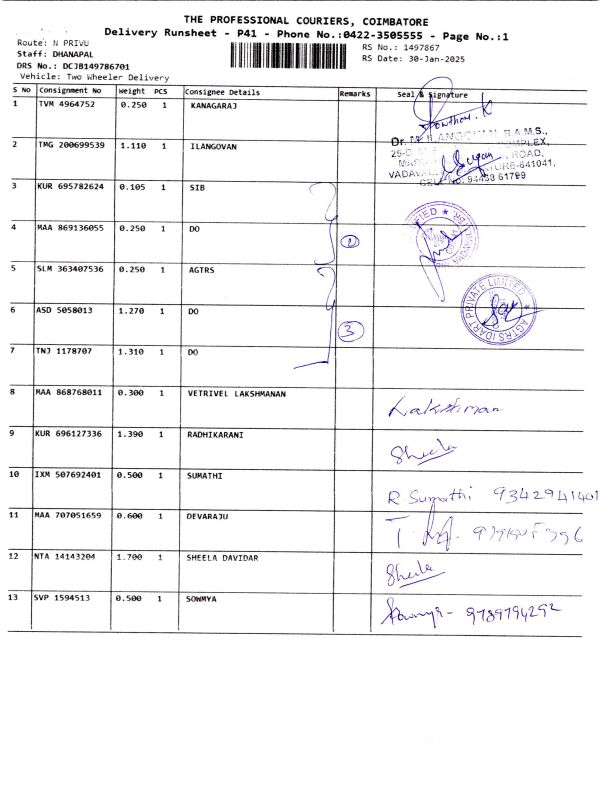 THE PROFESSIONAL COURIERS, COIMBATORE
Delivery Runsheet - P41 - Phone No.:0422-3505555 - Page No.:1
Route: N PRIVU
RS No.: 1497867
Staff: DHANAPAL
RS Date: 30-Jan-2025
DRS No.: DCJB149786701
Vehicle: Two Wheeler Delivery
S No Consignment No Weight PCS Consignee Details Remarks Seal & Signature
1 TVM 4964752 0.250 1 KANAGARAJ
2 TMG 200699539 1.110 1 ILANGOVAN
3 KUR 695782624 0.105 1 SIB
4 MAA 869136055 0.250 1 DO
5 SLM 363407536 0.250 1 AGTRS
6 ASD 5058013 1.270 1 DO 3
7 TNJ 1178707 1.310 1 DO
8 MAA 868768011 0.300 1 VETRIVEL LAKSHMANAN Lakshman
9 KUR 696127336 1.390 1 RADHIKARANI Sheela
10 IXM 507692401 0.500 1 SUMATHI R Sumathi 9342941401
11 MAA 707051659 0.600 1 DEVARAJU
12 NTA 14143204 1.700 1 SHEELA DAVIDAR Sheela
13 SVP 1594513 0.500 1 SOWMYA Sowmya - 9789794292